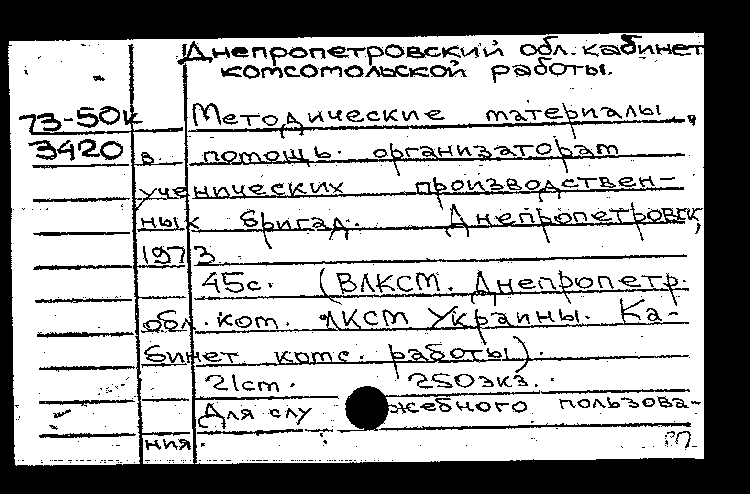 Днепропетровский обл. кабинет
комсомольской работы.
73-50к Методические материалы
3420 в помощь организаторам
ученических производствен-
ных бригад. Днепропетровск,
1973
45с. (ВЛКСМ. Днепропетр.
обл. ком. ЛКСМ Украины. Ка-
бинет комс. работы).
21см. 250экз.
Для служебного пользова-
ния.
РП